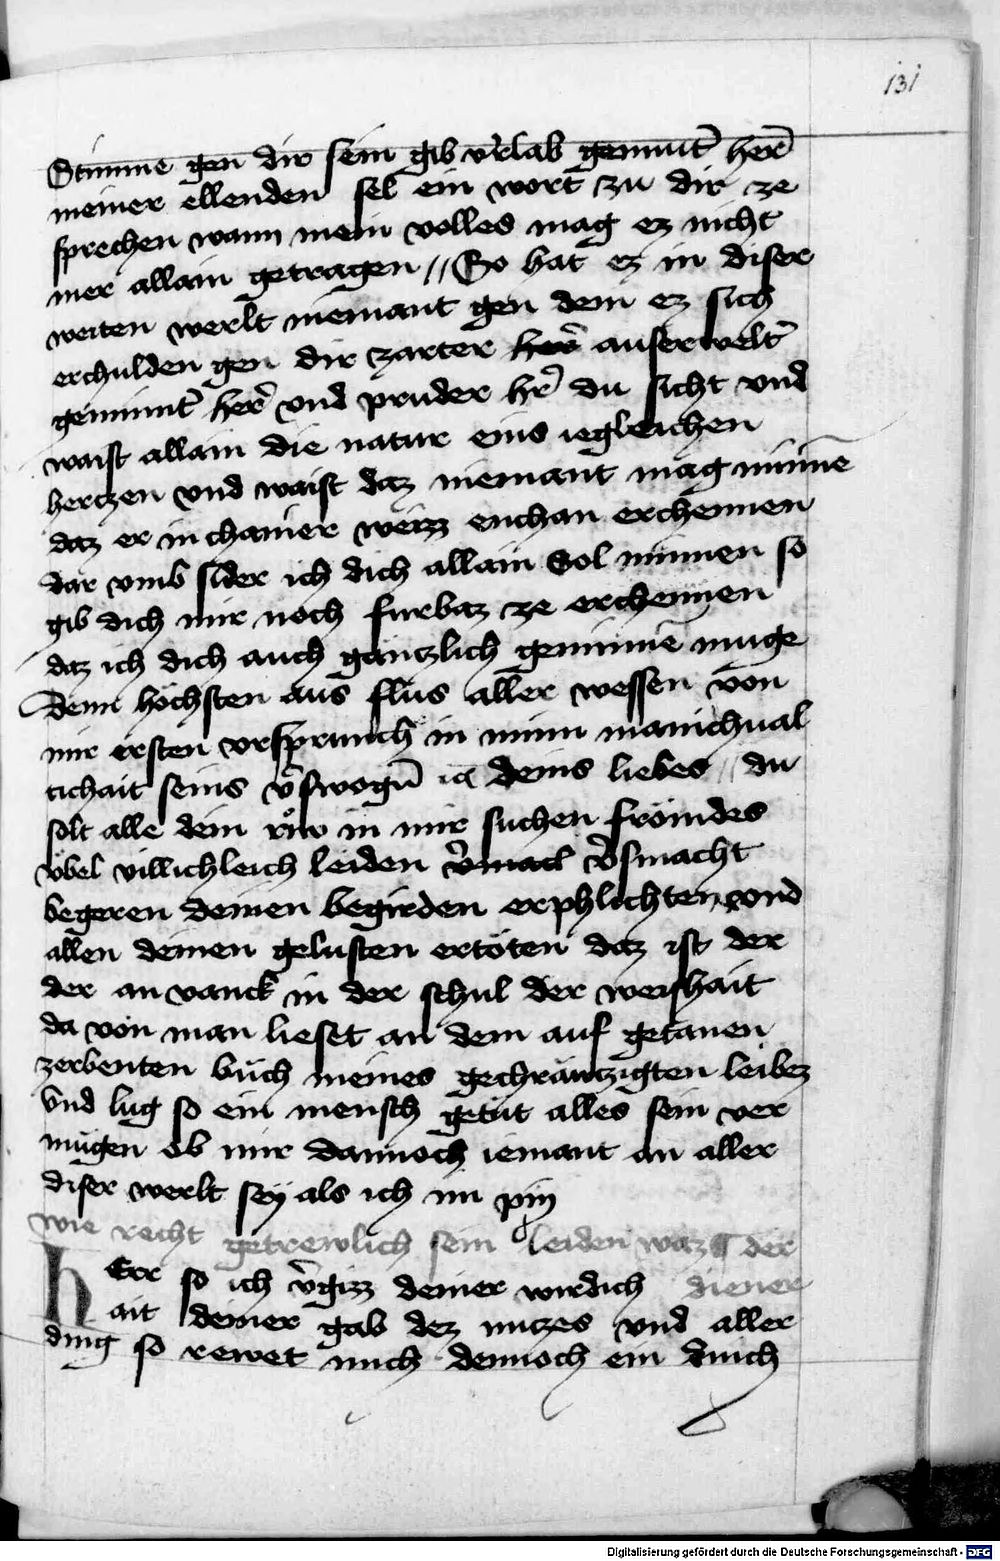 131
Stimme gen dir sein gib vrlab gemint̄ her̄
meiner ellenden sel ein wort zu dir ze
sprechen wann mein volles mag ez nicht
mer allain getragen // So hat ez in diser
weiten werlt niemant gen dem ez sich
erchulden gen dir zarter her̄ auserwelt̄
geminnt̄ her̄ vnd pruder hr̄ du sicht vnd
waist allain die natur eins iegleichen
herczen vnd waist daz niemant mag minnē
daz er in chainer weizz enchan erchennen
dar vmb sider ich dich allain Sol minnen so
gib dich mir noch furbaz ze erchennen
daz ich dich auch gänczlich geminnē muge
Dem höchsten aus flus aller wessen von
mir ersten vrsprunch in minn manichual
tichait seins deins liebes // du
solt alle dein rův in mir suchen frömdes
vbel villichleich leiden v̄smacht
begeren deinen begirden erphlichten vnd
allen deinen gelusten ertöten daz ist der
der an vanck in der schul der weishait
da von man lieset an dem auf getanen
zerdenten buch meines gechräwczigten leibez
Vnd lug so ein mensch getüt alles sein ver
mügen ob mir dannoch iemant an aller
diser werlt sey als ich im pin
wie recht getrewlich sein leiden waz der
HErr so ich v̄gizz deiner wirdich diener
ait deiner gab dez nuczes vnd aller
ding so rewet mich dennoch ein dinch
Digitalisierung gefördert durch die Deutsche Forschungsgemeinschaft - DFG